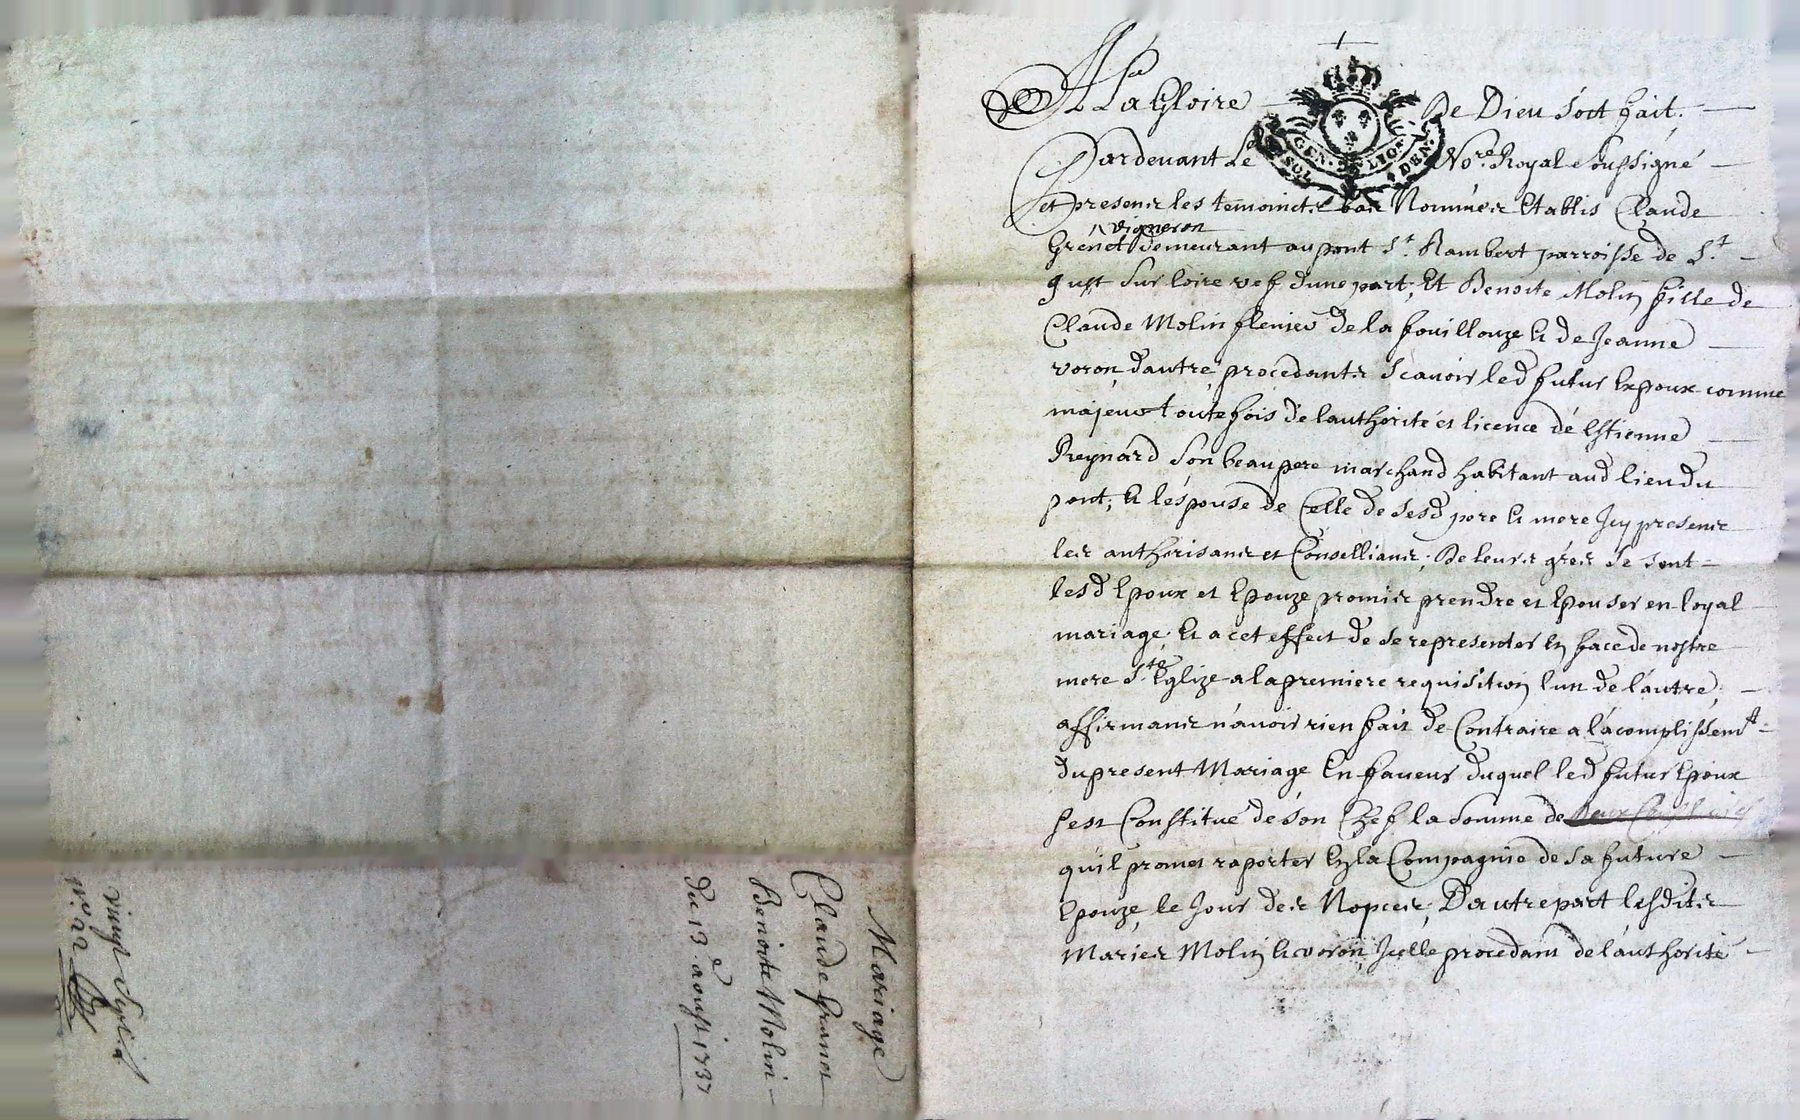 A La Gloire De Dieu Soit fait.
Pardevant Le No.re Royal Soussigné
et presens les temoincts bas Nommés Etablis Claude
vigneron
Grenet demeurant au pont S.t Rambert parroisse de S.t
Just Sur loire vef dune part; Et Benoite Molin fille de
Claude Molin de la fouillouze et de Jeanne
voron dautre procedants Scavoir led futur Expoux comme
majeur toutefois de lauthorité et licence dé Estienne
Reynard Son beaupere marchand habitant aud lieu du
pont, et lespouse de Celle de Sesd pere et mere Icy presens
les authorisans et Consellians; De leurs grés Se sont
lesd Epoux et Epouze promis prendre et Epouser en loyal
mariage et a cet effect de se representer En face de nostre
mere S.te Eglize a la premiere requisition lun de lautre,
affirmans n'avoir rien fait de Contraire a lacomplissem.t
du present Mariage En faveur duquel led futur Epoux
sest Constitué de son Chef la somme de
quil promet raporter En la Compagnie de Sa future
Epouze le Jour des Nopces, Dautre part lesdits
Mariés Molin et voron, Icelle procedant de lauthorité
GEN. LIO
SOL DEN.
Mariage
Claude Granet
Benoite Molin
du 13.e aoust 1737
vingt
n.o 22